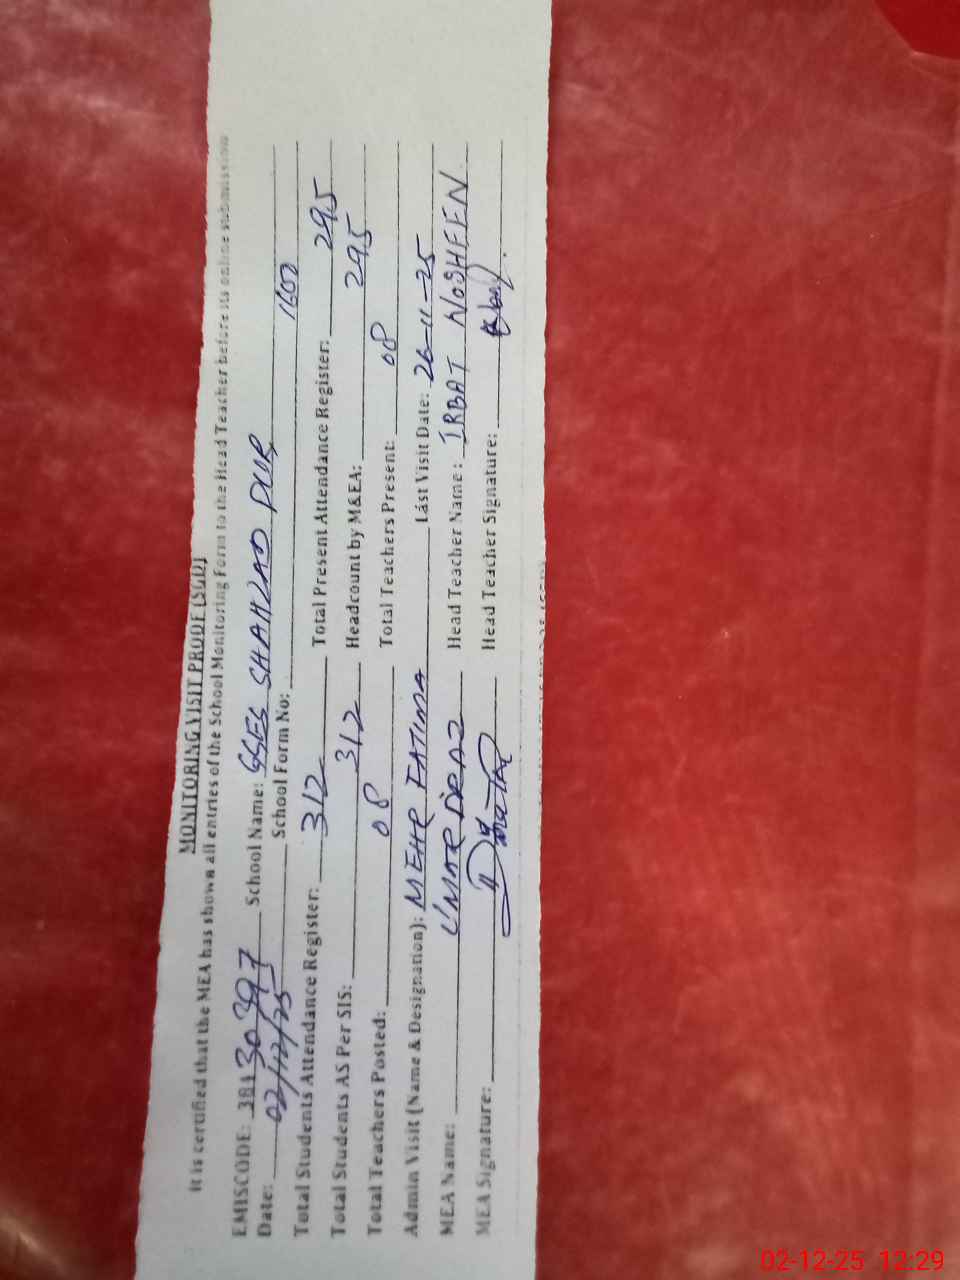 MONITORING VISIT PROOF (SGD)
It is certified that the MEA has shown all entries of the School Monitoring Form to the Head Teacher before its online submission
EMISCODE: 38130397 School Name: GGES SHAHZAD PUR
Date: 02/12/25 School Form No: 1600
Total Students Attendance Register: 312 Total Present Attendance Register: 295
Total Students AS Per SIS: 312 Headcount by M&EA: 295
Total Teachers Posted: 08 Total Teachers Present: 08
Admin Visit (Name & Designation): MEHR FATIMA Last Visit Date: 26-11-25
MEA Name: UMAR DRAZ Head Teacher Name: IRBAT NOSHEEN
MEA Signature: Head Teacher Signature:
02-12-25 12:29